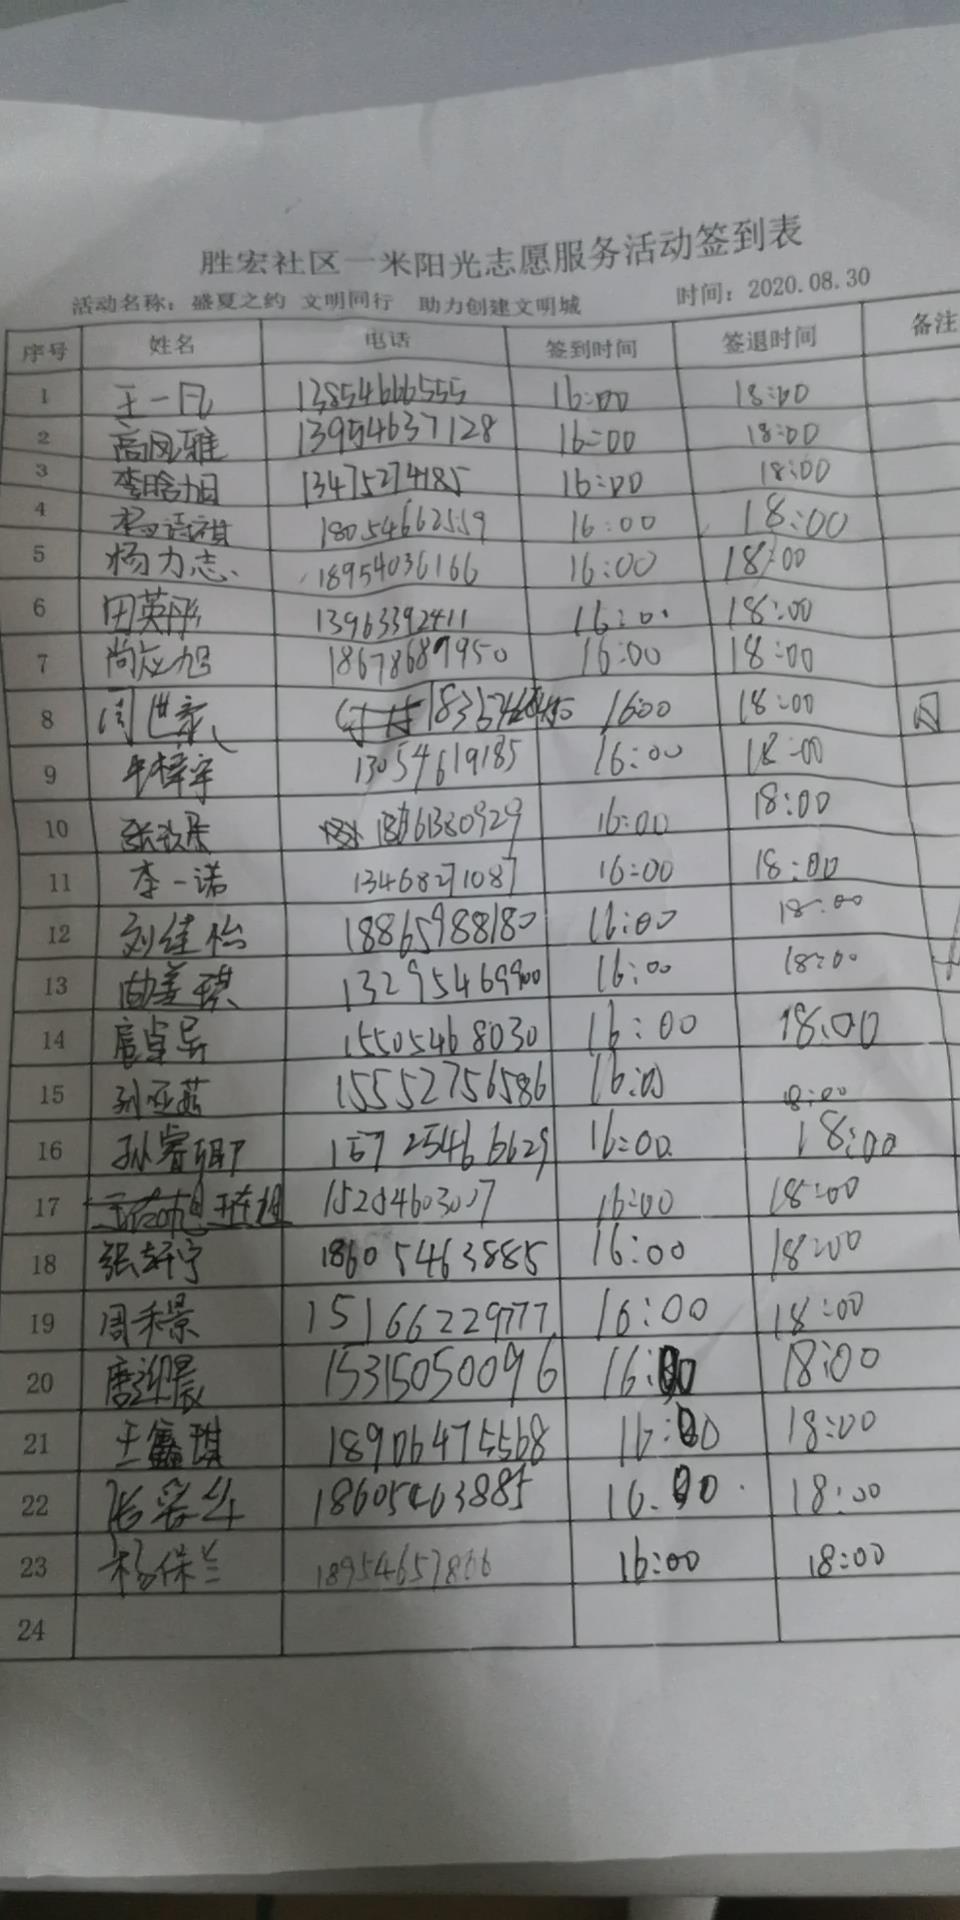 胜宏社区一米阳光志愿服务活动签到表
活动名称：盛夏之约 文明同行 助力创建文明城 时间：2020.08.30
序号 姓名 电话 签到时间 签退时间 备注
1 王一凡 13854666555 16:00 18:00
2 高风雅 13954637128 16:00 18:00
3 李晗旭 13475274185 16:00 18:00
4 18054662559 16:00 18:00
5 杨力志 18954036166 16:00 18:00
6 田英彤 13963392411 16:00 18:00
7 尚 旭 18678689950 16:00 18:00
8 周世豪 16:00 18:00
9 牛梓宇 13054619185 16:00 18:00
10 16:00 18:00
11 李一诺 13468271087 16:00 18:00
12 刘佳怡 18865988180 16:00 18:00
13 琪 13295469900 16:00 18:00
14 15505468030 16:00 18:00
15 孙亚茹 15552756586 16:00 18:00
16 孙睿 15725466629 16:00 18:00
17 16:00 18:00
18 张轩宁 18605463885 16:00 18:00
19 周禾景 15166229777 16:00 18:00
20 唐 晨 15315050096 16:00 18:00
21 王鑫琪 18906475568 16:00 18:00
22 18605463885 16:00 18:00
23 杨保兰 18954657866 16:00 18:00
24